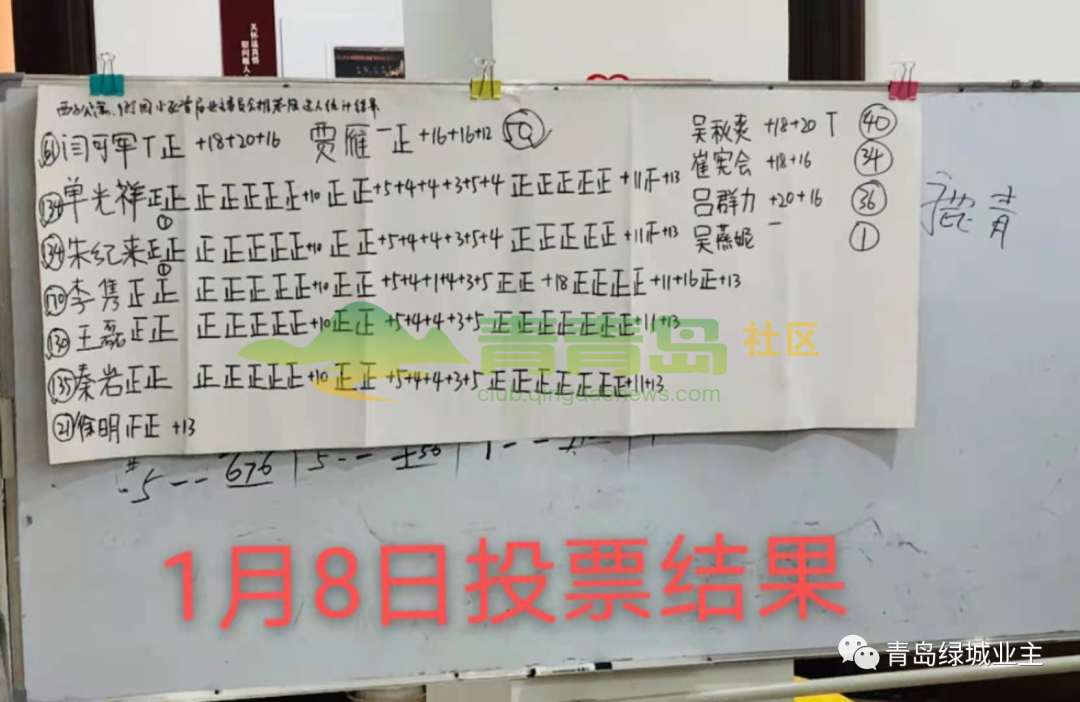 关怀送真情
慰问暖人
闫可军 T正 +18+20+16
贾雁 一正 +16+16+12 50
吴秋爽 +18+20 T 40
崔宪会 +18+16 34
吕群力 +20+16 36
吴燕妮 一 1
134 单光祥 正正 正正正正正+10 正正+5+4+4+3+5+4 正正正正正 +11正+13
①
134 朱纪来 正正 正正正正正+10 正正+5+4+4+3+5+4 正正正正正 +11正+13
①
170 李隽 正正 正正正正正+10 正正 +5+4+1+4+3+5 正正 +18正正正正 +11+16正+13
130 王磊 正正 正正正正正+10 正正 +5+4+4+3+5 正正正正正正正+11+13
135 秦岩 正正 正正正正正+10 正正 +5+4+4+3+5 正正正正正正正+11+13
21 徐明 正 +13
青青岛社区
club.qingdaonews.com
5 -- 676 5 --
青
1月8日投票结果
青岛绿城业主